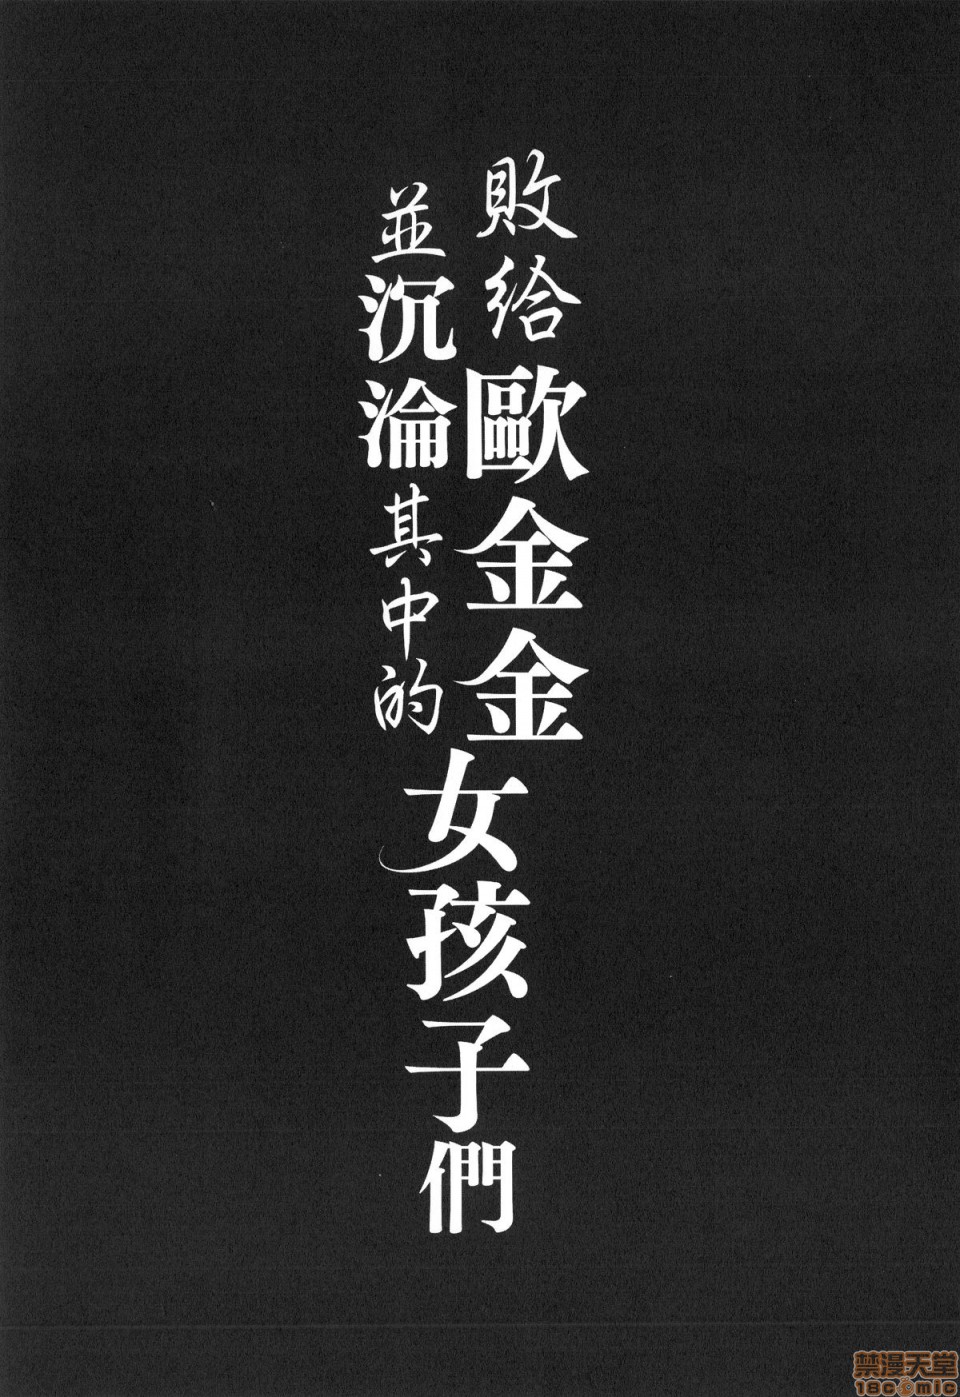 敗給歐金金
並沉淪其中的
女孩子們
禁漫天堂
18COMIC